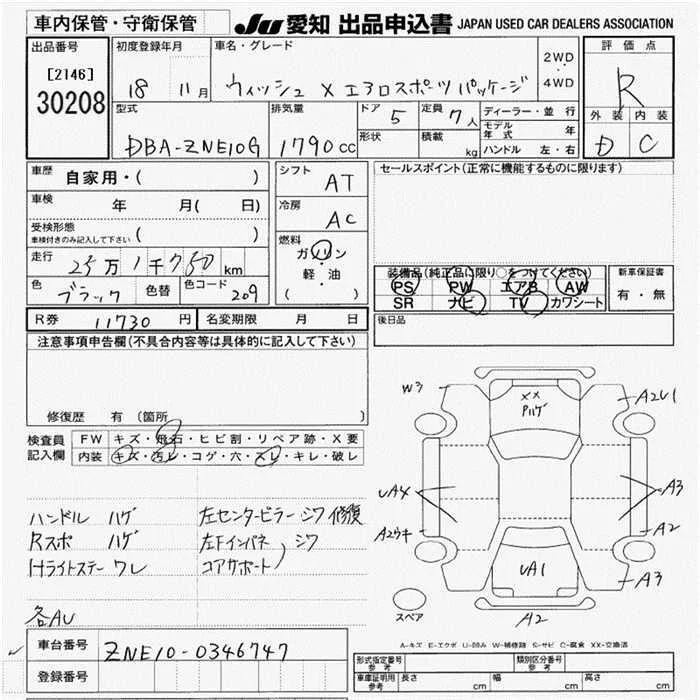 車内保管・守衛保管
JU 愛知 出品申込書 JAPAN USED CAR DEALERS ASSOCIATION
出品番号
[2146]
30208
初度登録年月
18 11月
車名・グレード
ウィッシュ X エアロスポーツパッケージ
2WD
・
4WD
評価点
R
外装 内装
D C
型式
DBA-ZNE10G
排気量
1790 cc
ドア 5
形状
定員 7人
積載 kg
ディーラー・並行
モデル年式 年
ハンドル 左・右
車歴 自家用・( )
車検 年 月( 日)
受検形態
車検付きのみ記入して下さい ( )
走行 25万1千750 km
色 ブラック 色替 色コード 209
シフト AT
冷房 AC
燃料
ガソリン
・
軽・油
( )
セールスポイント(正常に機能するものに限ります)
装備品(純正品に限り○をつけてください)
PS PW エアB AW
SR ナビ TV カワシート
新車保証書
有・無
後日品
R券 11730 円 名変期限 月 日
注意事項申告欄(不具合内容等は具体的に記入して下さい)
修復歴 有 (箇所 )
検査員
記入欄
FW キズ・飛石・ヒビ割・リペア跡・X要
内装 キズ・汚レ・コゲ・穴・スレ・キレ・破レ
ハンドル ハゲ 左センターピラー シワ 修復
Rスポ ハゲ 左Fインパネ シワ
Hライトステー ワレ コアサポート
各AU
W3
XX
Pハゲ
A2U1
UA4
A3
A2ウキ
A2
UA1
A3
スペア
A2
A-キズ E-エクボ U-凹み W-補修跡 S-サビ C-腐食 XX-交換済
車台番号 ZNE10-0346747
登録番号
形式指定番号
参考
類別区分番号
参考
車庫証明用
参考
長さ cm 幅 cm 高さ cm